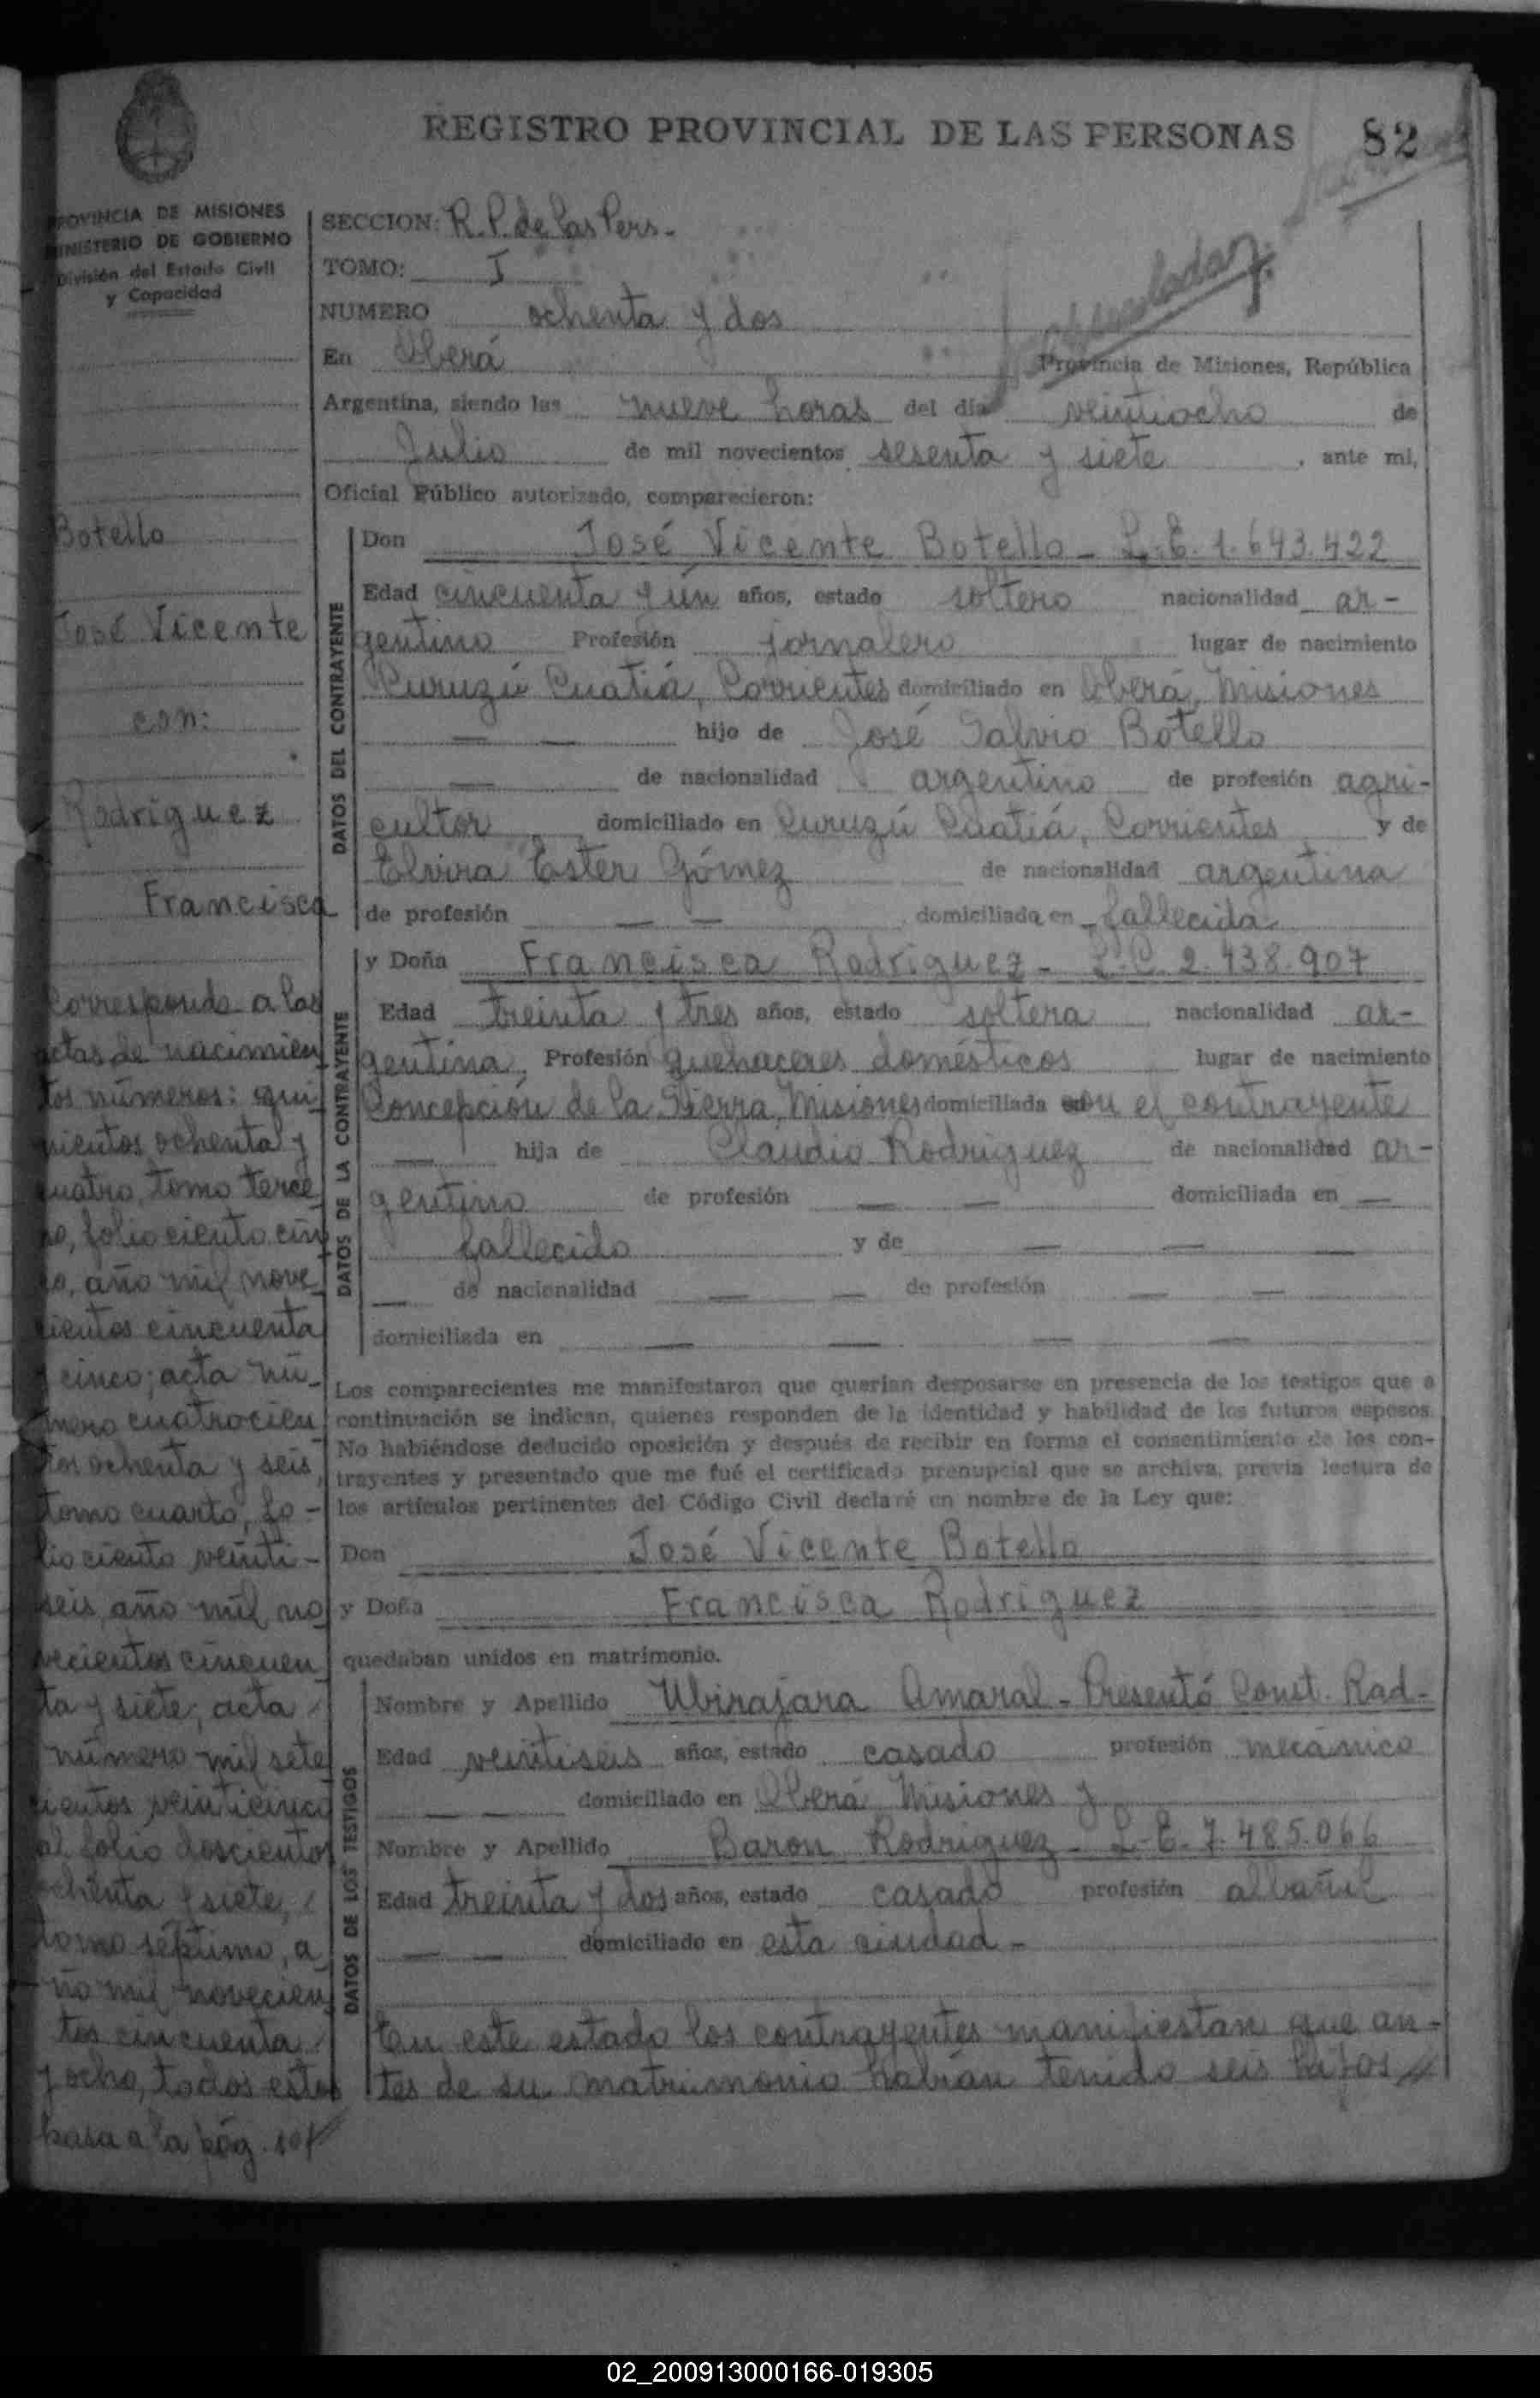 REGISTRO PROVINCIAL DE LAS PERSONAS 82
PROVINCIA DE MISIONES
MINISTERIO DE GOBIERNO
División del Estado Civil
y Capacidad
SECCION: R. P. de las Pers.
TOMO: I
NUMERO ochenta y dos
En Oberá Provincia de Misiones, República
Argentina, siendo las nueve horas del día veintiocho de
Julio de mil novecientos sesenta y siete, ante mi,
Oficial Público autorizado, comparecieron:
Botello
José Vicente
con:
Rodriguez
Francisca
Corresponde a las
actas de nacimien
tos números: qui
nientos ochenta y
cuatro, tomo terce
ro, folio ciento cin
co, año mil nove
cientos cincuenta
y cinco; acta nú-
mero cuatrocien
tos ochenta y seis,
tomo cuarto, fo-
lio ciento veinti-
seis, año mil no
vecientos cincuen
ta y siete; acta
número mil sete
cientos veinticinco
al folio doscientos
ochenta y siete,
tomo séptimo, a
ño mil novecien
tos cincuenta
y ocho, todos estos
pasa a la pág.
DATOS DEL CONTRAYENTE
Don José Vicente Botello - L.E. 1.643.422
Edad cincuenta y ún años, estado soltero nacionalidad ar-
gentino Profesión jornalero lugar de nacimiento
Curuzú Cuatiá, Corrientes domiciliado en Oberá, Misiones
— — hijo de José Salvio Botello
— de nacionalidad argentino de profesión agri-
cultor domiciliado en Curuzú Cuatiá, Corrientes y de
Elvira Ester Gómez de nacionalidad argentina
de profesión — — domiciliada en fallecida
DATOS DE LA CONTRAYENTE
y Doña Francisca Rodriguez - L.C. 2.438.907
Edad treinta y tres años, estado soltera nacionalidad ar-
gentina, Profesión quehaceres domésticos lugar de nacimiento
Concepción de la Sierra, Misiones domiciliada con el contrayente
— hija de Claudio Rodriguez de nacionalidad ar-
gentino de profesión — — domiciliada en —
fallecido y de — — —
— de nacionalidad — — de profesión — —
domiciliada en — — — —
Los comparecientes me manifestaron que querían desposarse en presencia de los testigos que a
continuación se indican, quienes responden de la identidad y habilidad de los futuros esposos.
No habiéndose deducido oposición y después de recibir en forma el consentimiento de los con-
trayentes y presentado que me fué el certificado prenupcial que se archiva, previa lectura de
los artículos pertinentes del Código Civil declaré en nombre de la Ley que:
Don José Vicente Botello
y Doña Francisca Rodriguez
quedaban unidos en matrimonio.
DATOS DE LOS TESTIGOS
Nombre y Apellido Ubirajara Amaral - Presentó Const. Rad-
Edad veintiseis años, estado casado profesión mecánico
— — domiciliado en Oberá Misiones y
Nombre y Apellido Baron Rodriguez - L.E. 7.485.066
Edad treinta y dos años, estado casado profesión albañil
— — domiciliado en esta ciudad -
En este estado los contrayentes manifiestan que an-
tes de su matrimonio habían tenido seis hijos
02_200913000166-019305